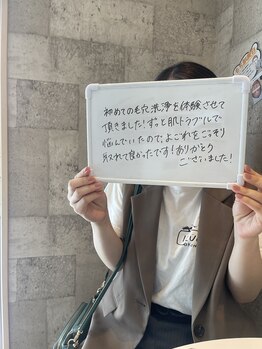 初めての毛穴洗浄を体験させて
頂きました！ずっと肌トラブルで
悩んでいたので、よごれをごっそり
とれて良かったです！ありがとう
ございました！